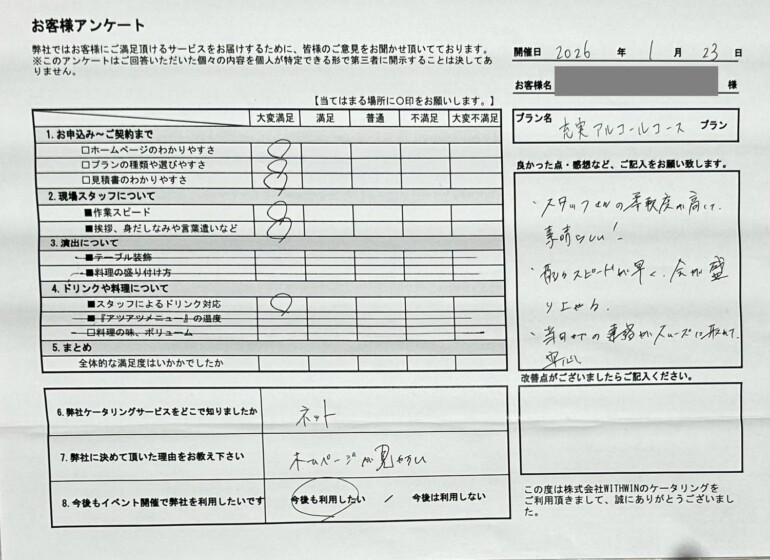 お客様アンケート
弊社ではお客様にご満足頂けるサービスをお届けするために、皆様のご意見をお聞かせ頂いてております。
※このアンケートはご回答いただいた個々の内容を個人が特定できる形で第三者に開示することは決してあ
りません。
開催日 2026 年 1 月 23 日
お客様名 様
プラン名 充実アルコールコース プラン
【当てはまる場所に○印をお願いします。】
大変満足 満足 普通 不満足 大変不満足
1.お申込み～ご契約まで
□ホームページのわかりやすさ
□プランの種類や選びやすさ
□見積書のわかりやすさ
2.現場スタッフについて
■作業スピード
■挨拶、身だしなみや言葉遣いなど
3.演出について
■テーブル装飾
■料理の盛り付け方
4.ドリンクや料理について
■スタッフによるドリンク対応
■『アツアツメニュー』の温度
□料理の味、ボリューム
5.まとめ
全体的な満足度はいかかでしたか
良かった点・感想など、ご記入をお願い致します。
・スタッフさんの柔軟度が高くて、
素晴らしい!
・配りスピードが早く、会が盛
り上がる
・当日までの連絡がスムーズに取れて、
安心
改善点がございましたらご記入ください。
6.弊社ケータリングサービスをどこで知りましたか ネット
7.弊社に決めて頂いた理由をお教え下さい ホームページが見やすい
8.今後もイベント開催で弊社を利用したいです 今後も利用したい / 今後は利用しない
この度は株式会社WITHWINのケータリングを
ご利用頂きまして、誠にありがとうございまし
た。